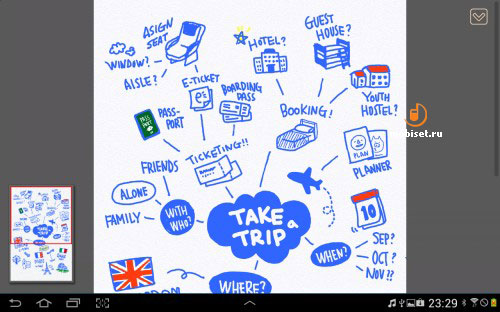 ASIGN
SEAT
WINDOW?
AISLE?
E-TICKET
BOARDING
PASS
HOTEL?
GUEST
HOUSE?
PASS
PORT
PASS-
PORT
BOOKING!
YOUTH
HOSTEL?
biset.ru
TICKETING!!
PLAN
PLANNER
FRIENDS
ALONE
FAMILY
WITH
WHO?
TAKE
a
TRIP
10
WHEN?
SEP?
OCT?
NOV??
WHERE?
23:29